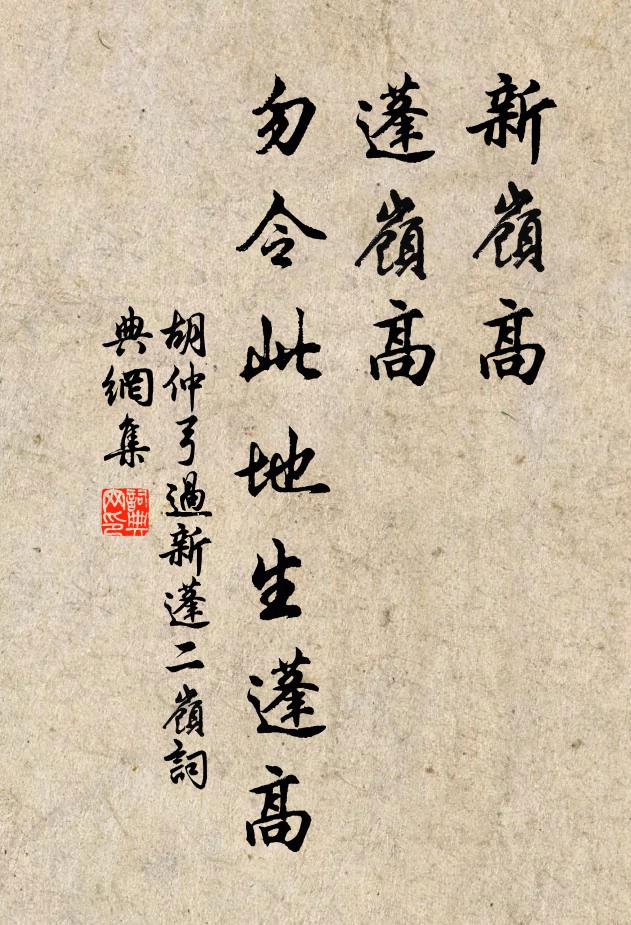 新嶺高
蓬嶺高
勿令此地生蓬高
胡仲弓過新蓬二嶺詞
典網集
詞典网印